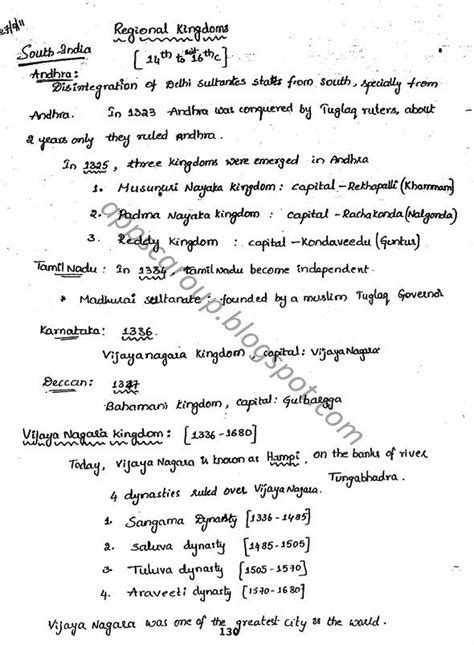 27/9/11
Regional Kingdoms
South India [14th to 16thc]
Andhra:
Disintegration of Delhi sultantes starts from south, specially from
Andhra. In 1323 Andhra was conquered by Tuglaq rulers, about
2 years only they ruled Andhra.
In 1325, three kingdoms were emerged in Andhra
1. Musunuri Nayaka kingdom: capital - Rekhapalli (Khammam)
2. Padma Nayaka kingdom: capital - Rachakonda (Nalgonda)
3. Reddy Kingdom: capital - Kondaveedu (Guntur)
Tamil Nadu: In 1334, Tamil nadu become independent.
* Madhurai sultanate: founded by a muslim Tuglaq Governor
Karnataka: 1336.
Vijayanagara Kingdom, capital: Vijaya Nagara
Deccan: 1347
Bahamani kingdom, capital: Gulbargga
Vijaya Nagara kingdom: [1336-1680]
Today, Vijaya Nagara is known as Hampi, on the banks of river
Tungabhadra.
4 dynasties ruled over Vijaya Nagara.
1. Sangama Dynasty [1336-1485]
2. Saluva dynasty [1485-1505]
3. Tuluva dynasty [1505-1570]
4. Araveeti dynasty [1570-1680]
Vijaya Nagara was one of the greatest city in the world.
130
appscgroup.blogspot.com